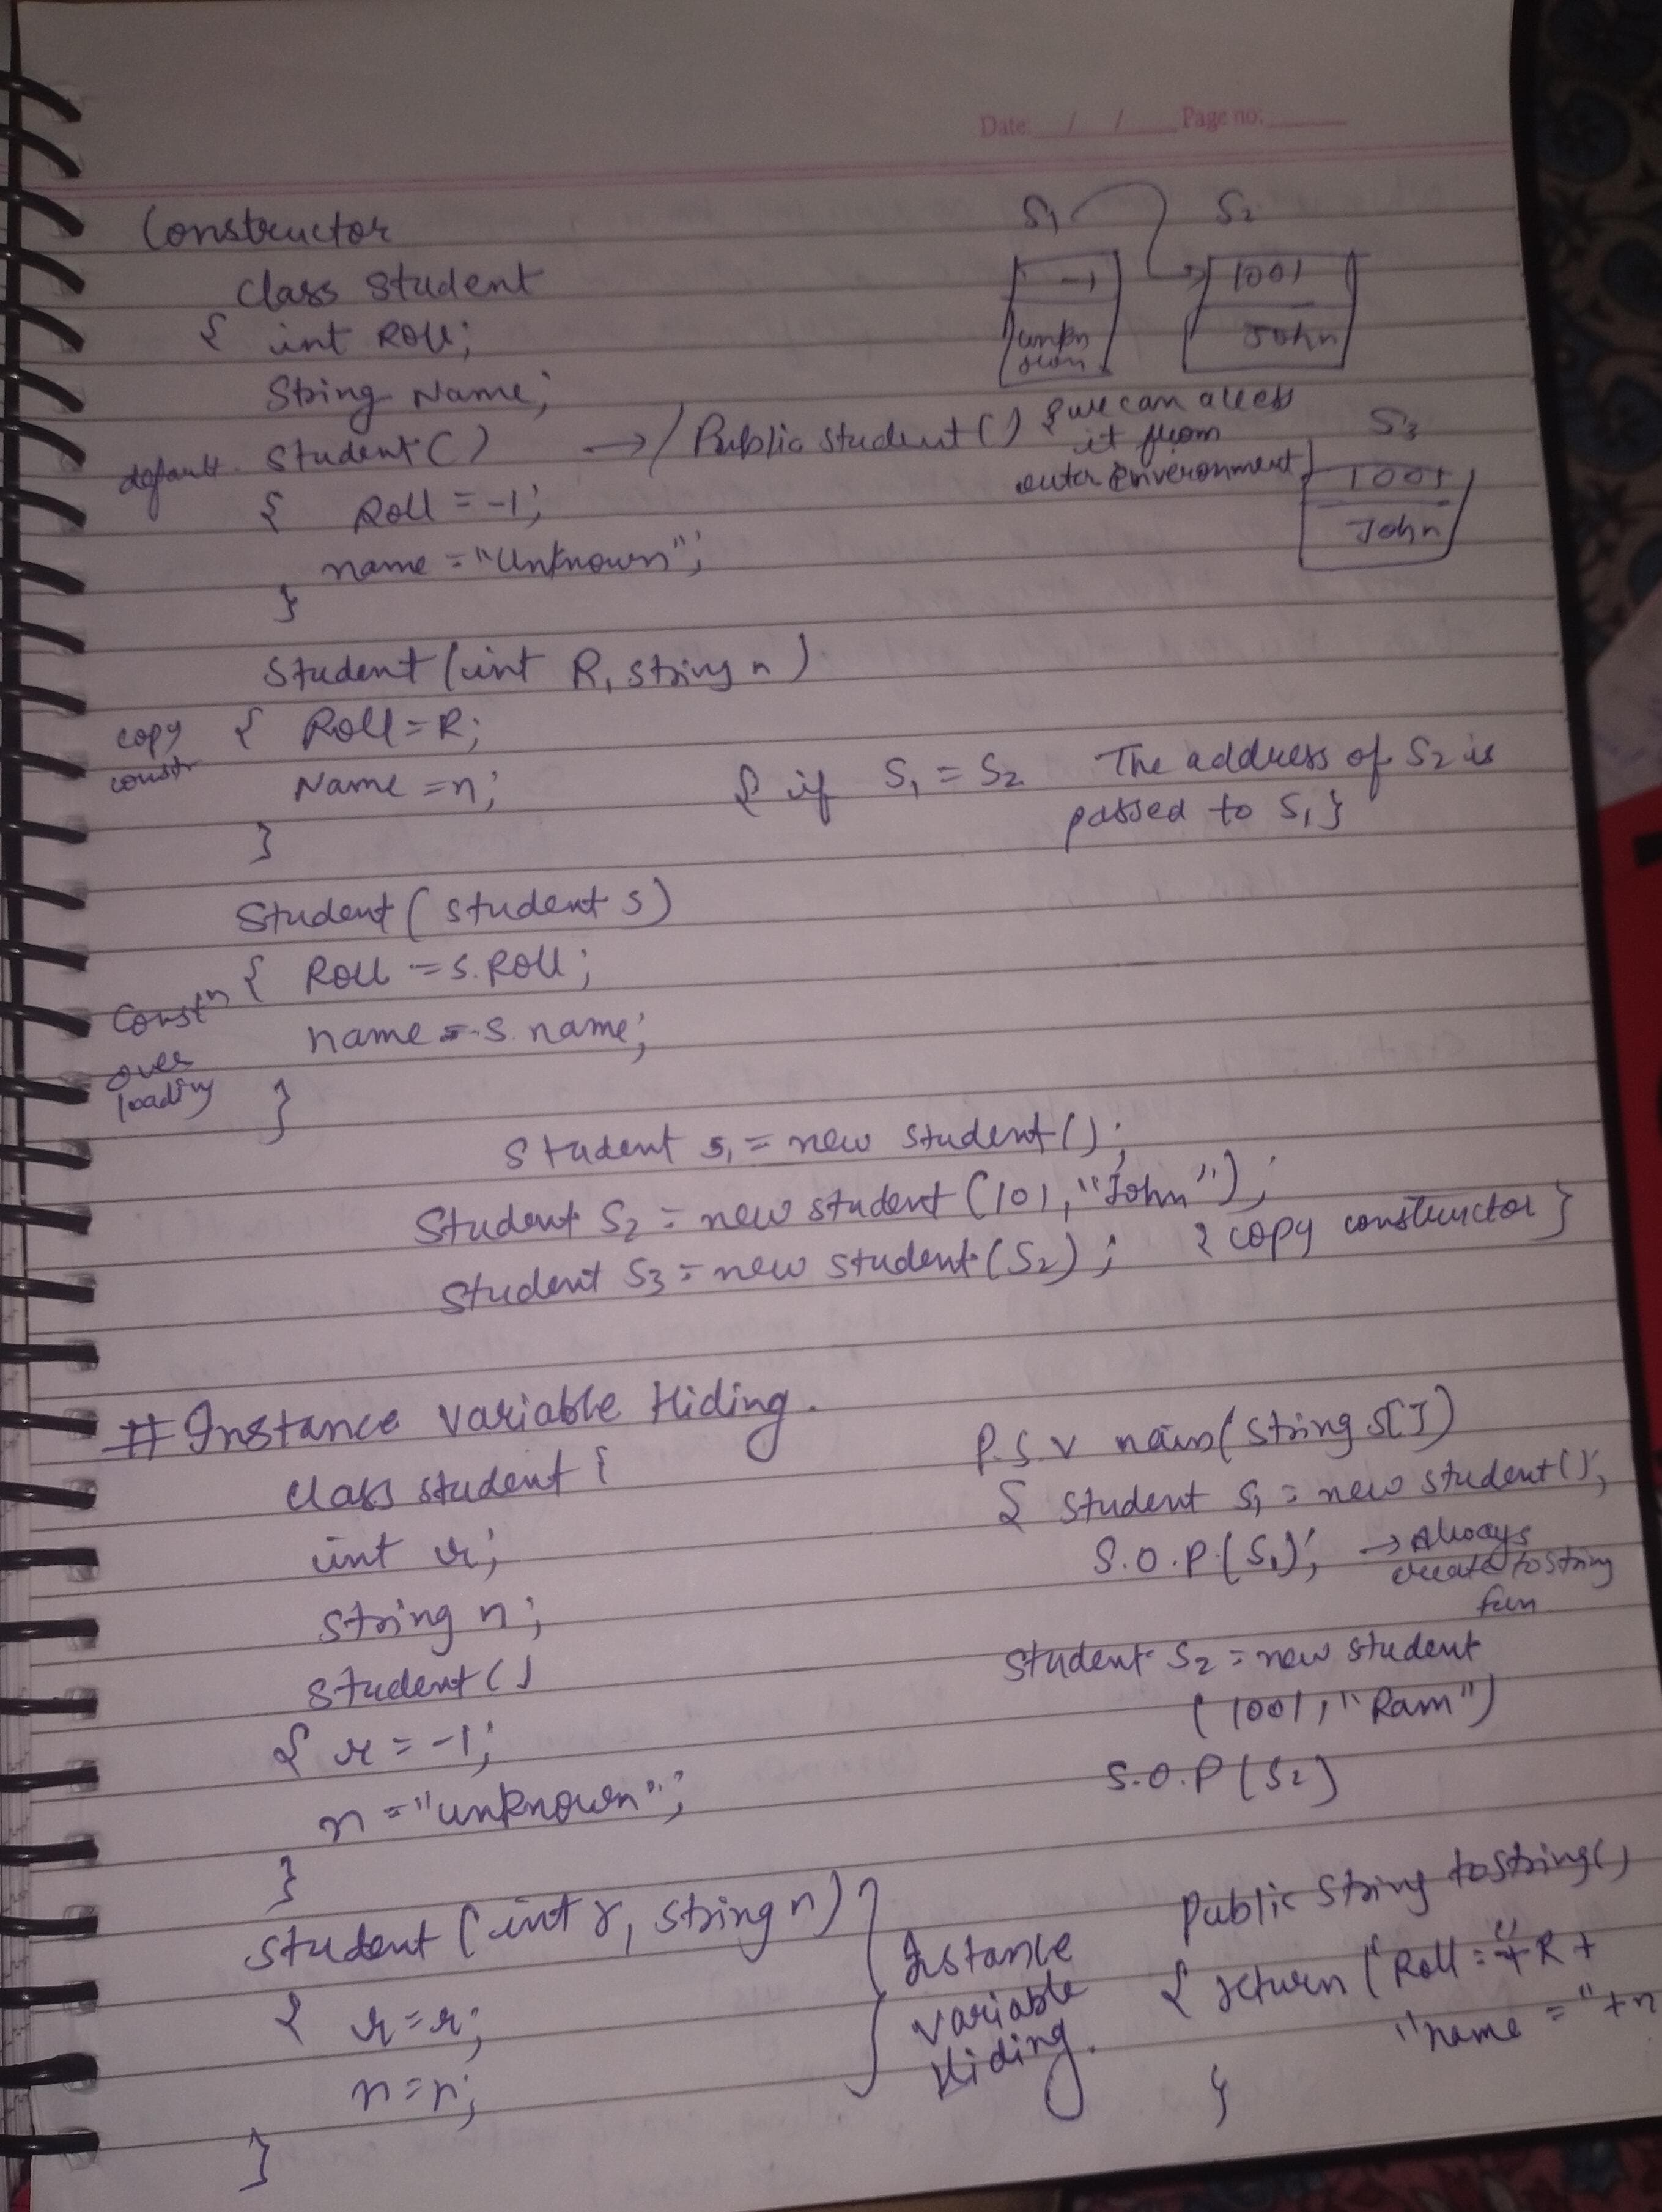 Date / / Page no:
Constructor
class student
{ int Roll;
String Name;
default Student()
→ / Public student() {we can access
it from
outer environment}
{ Roll = -1;
name = "Unknown";
}
S1 S2
-1 1001
unkn John
own
S3
1001
John
Student (int R, string n)
copy
constr
{ Roll = R;
Name = n;
}
{ if S1 = S2 The address of S2 is
passed to S1 }
Student ( student s)
{ Roll = s.Roll;
name = s.name;
}
Constn
over
loading
Student s1 = new student();
Student S2 = new student (101, "John");
Student S3 = new student (S2); { copy constructor }
# Instance variable Hiding.
class student {
int r;
string n;
student()
{ r = -1;
n = "unknown";
}
student (int r, string n)
{ r = r;
n = n;
}
Instance
variable
Hiding.
P.S.V main(string s[])
{ student S1 = new student();
S.O.P (S1); → Always
create toString
fun
student S2 = new student
(1001, "Ram")
S.O.P (S2)
Public String toString()
{ return ("Roll = " + R +
"name = " + n
}